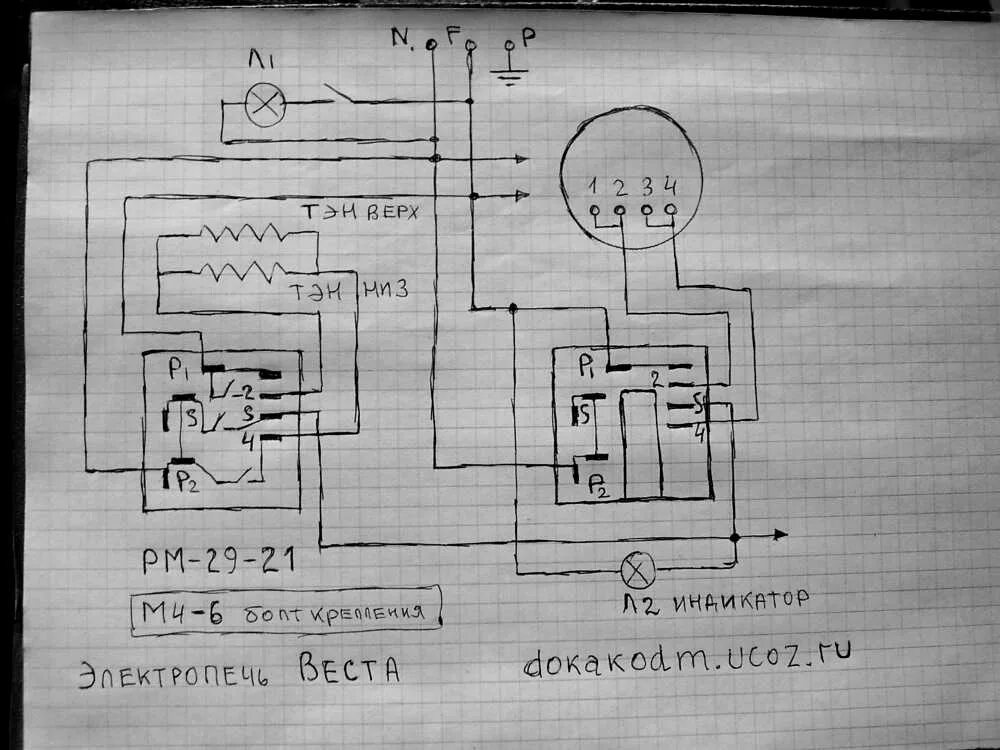 N. F P
Л1
1 2 3 4
ТЭН ВЕРХ
ТЭН НИЗ
P1
2
S
S
4
P2
P1
2
S
S
4
P2
РМ-29-21
М4-6 болт крепления
Л2 ИНДИКАТОР
ЭЛЕКТРОПЕЧЬ ВЕСТА
dokakodm.ucoz.ru